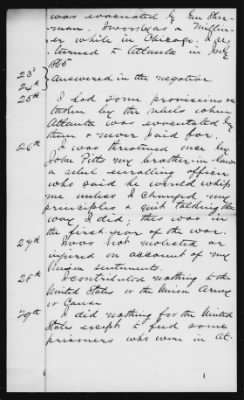 was evacuated by Gen Sher-
man. I was as a
while in Chicago. I re-
turned to Atlanta in July
1865
23d
24th } Answered in the negative
25th I had some provisions
taken by the rebels when
Atlanta was evacuated by
them & never paid for.
26th I was threatened once by
John Pitts my brother-in-law
a rebel enrolling officer
who said he would whip
me unless I changed my
principles & quit talking the
way I did; this was in
the first year of the war.
27th I was not molested or
injured on account of my
Union sentiments.
28th I contributed nothing to the
United States or the Union Army
or Cause
29th I did nothing for the United
States except to feed some
prisoners who were in At-